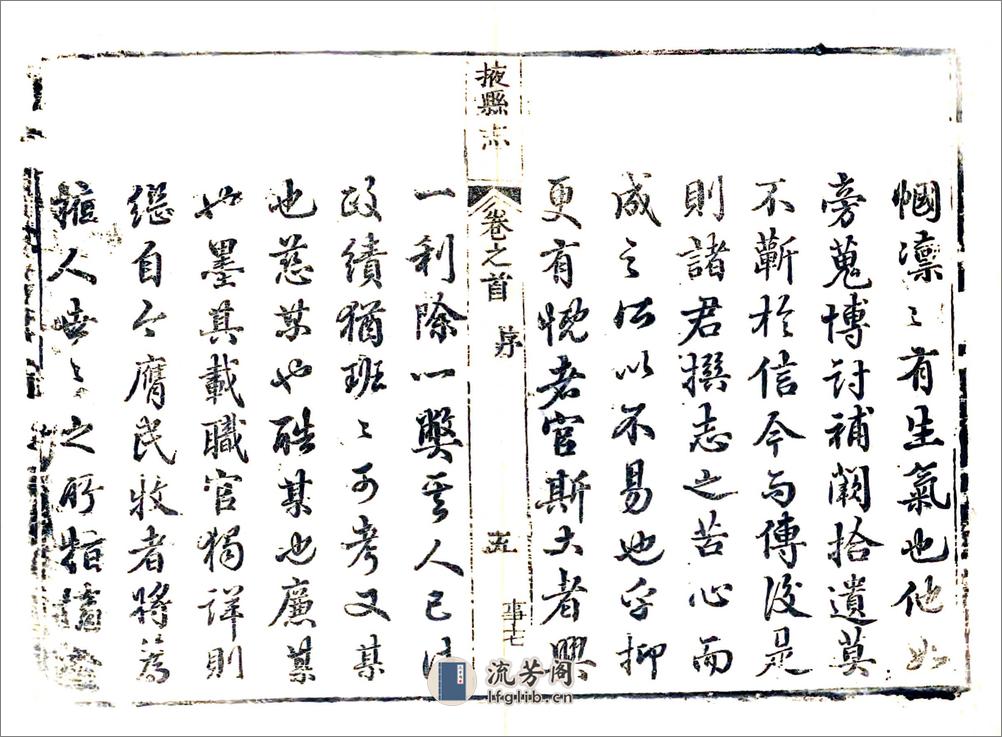 幗凛〻有生氣也他如
旁蒐博討補闕拾遺莫
不蘄於信今傳後是
則諸君撰志之苦心而
成之所以不易也乎抑
更有者官斯土者興
掖縣志 卷之首 序
一利除一弊其人已往
政績猶班〻可考又某
也慈某也酷某也廉某
也墨其載職官獨詳則
繼自今膺民牧者將為
人〻之所指摘
流芳阁
lfglib.cn